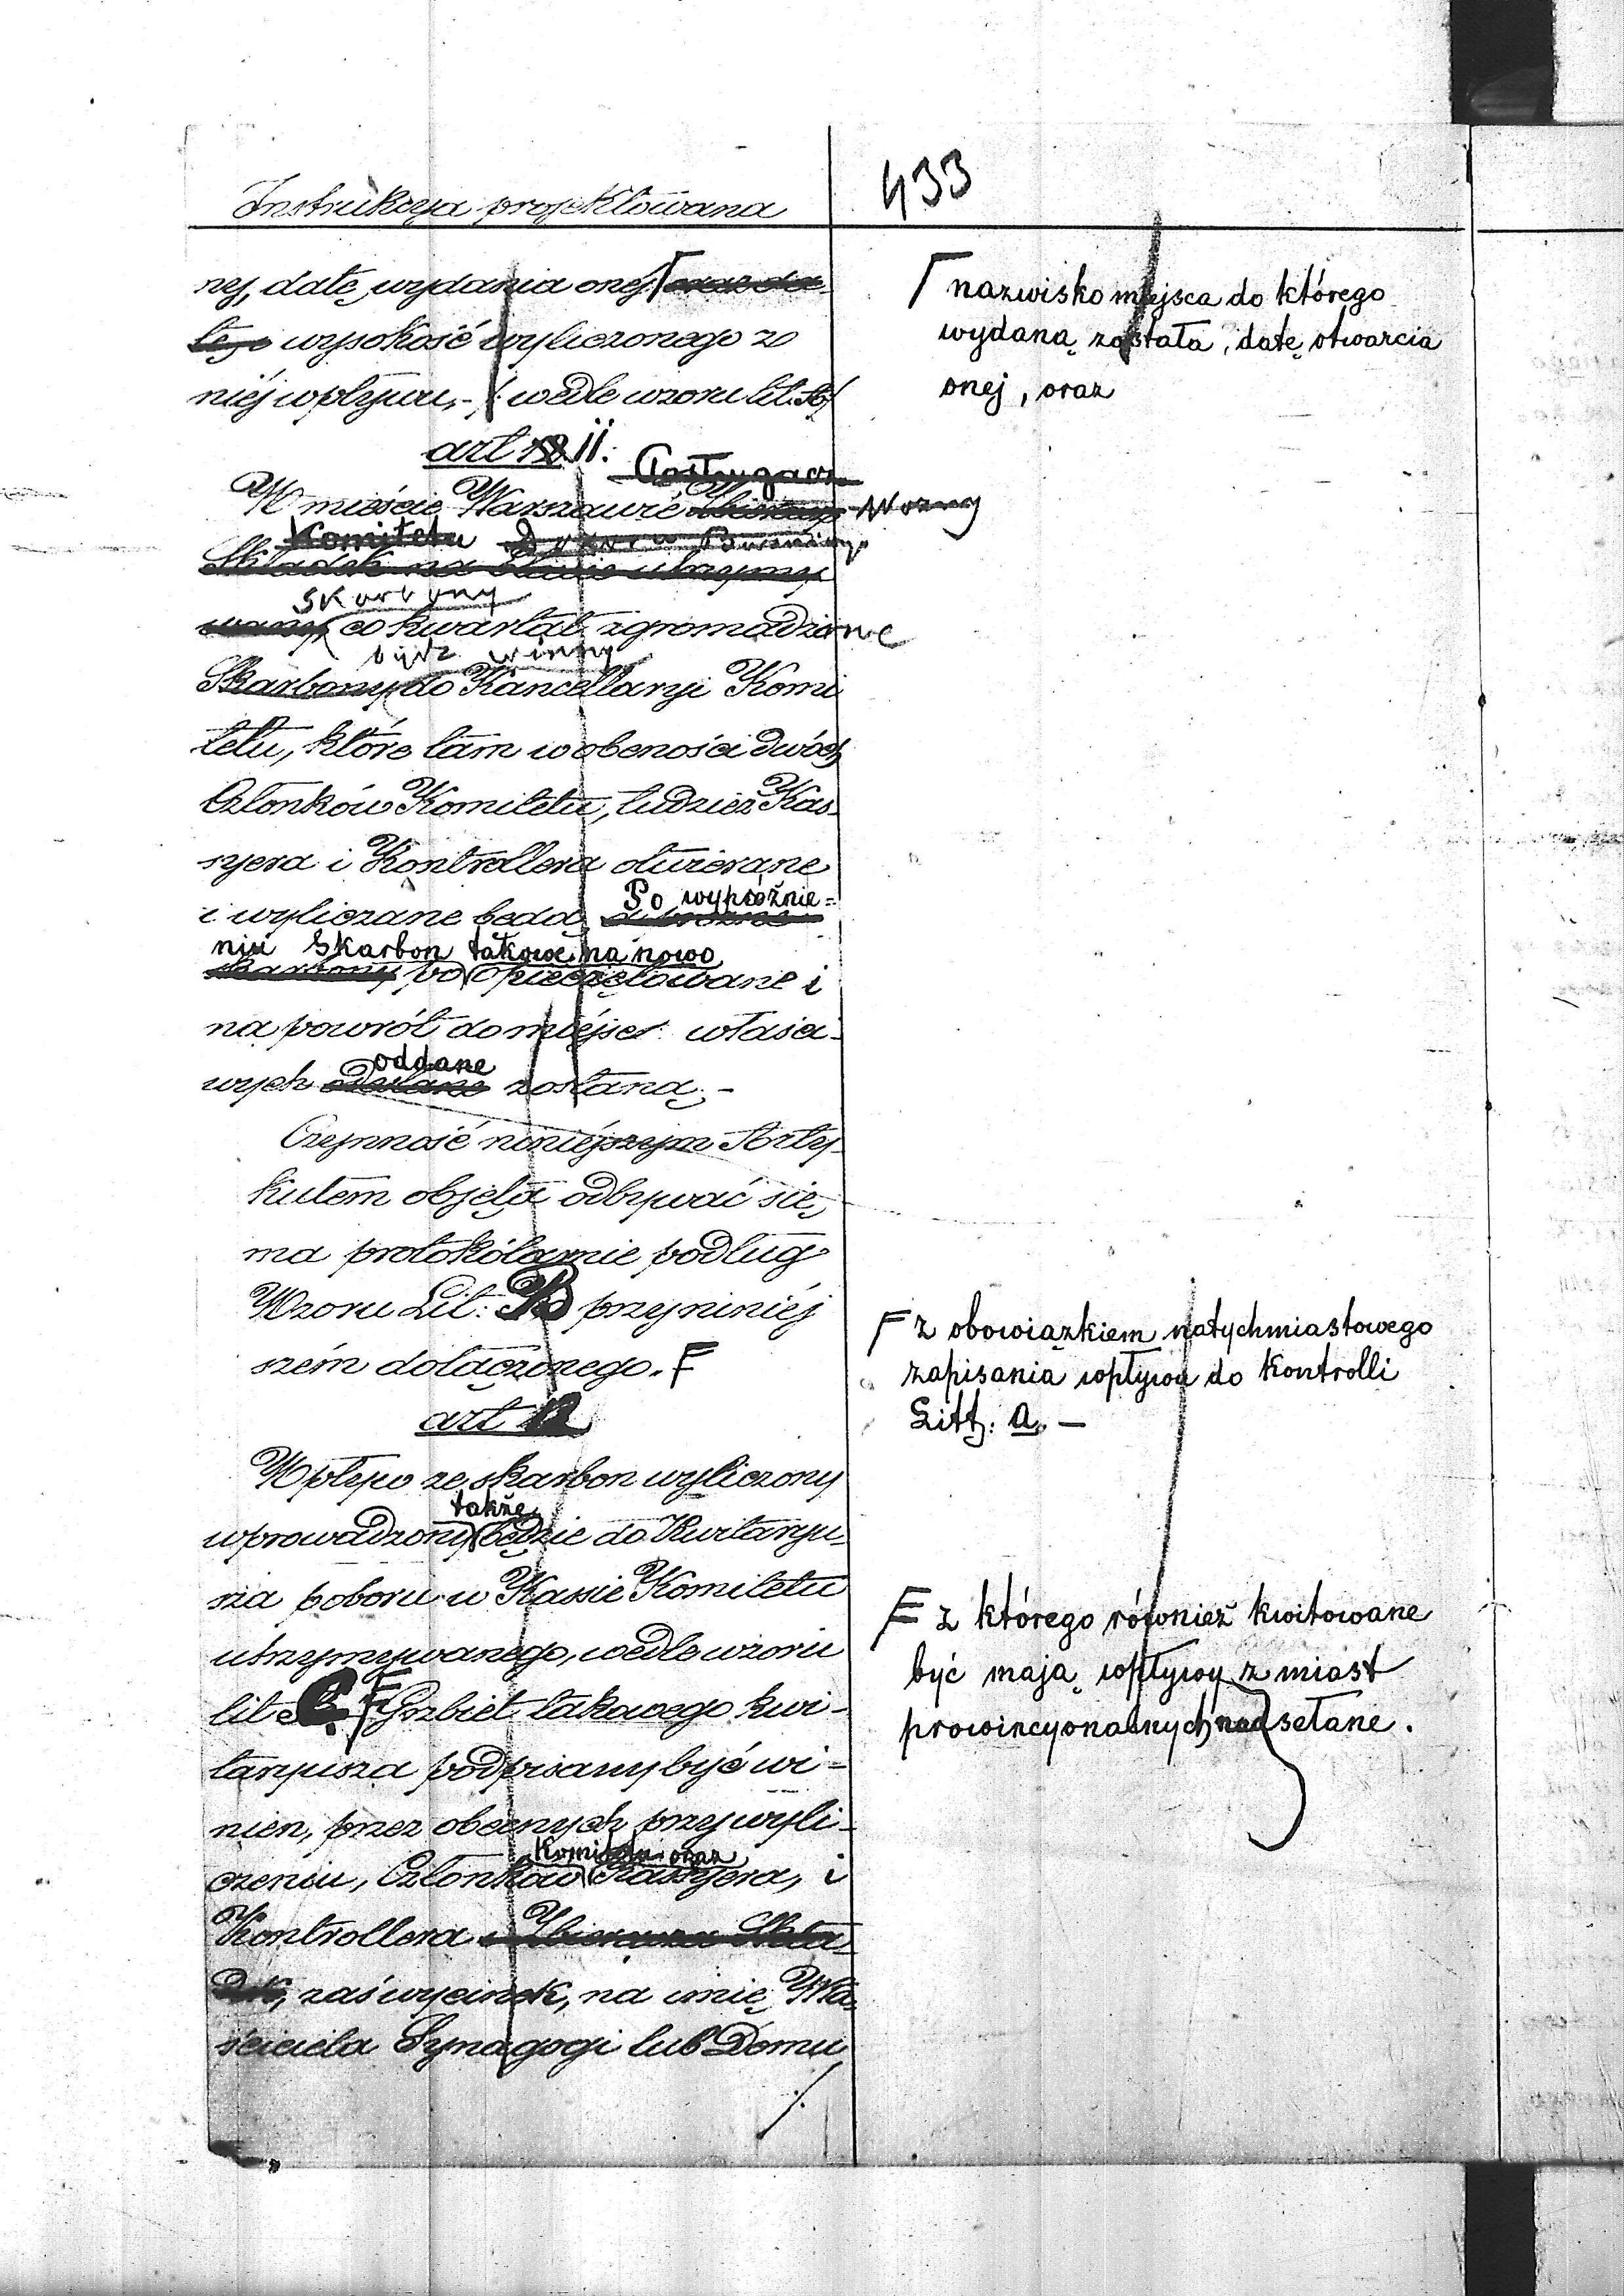 433
Instrukcya projektowana
nej, datę wydania onej Γ oraz da-
tę i wysokość wyliczonego z
niéj wpływu,- (wedle wzoru lit. A)
art 12 11.
Posługacz
W mieście Warszawie Woźny
Komitetu Dozoru
Składek na utrzymy
skarbony
co kwartał zgromadzone
być winny
Skarbony do Kancellaryi Komi
tetu, które tam w obcności dwóch
Członków Komitetu, tudzież Kas-
syera i Kontrollera otwierane
Po wypróżnie=
i wyliczane będą,
niu Skarbon takowe na nowo
skarbony po opieczętowane i
na powrót do miejsc właści-
oddane
wych odesłane zostaną.-
Czynność niniéjszym Arty-
kułem objęta odbywać się
ma protokólarnie podług
Wzoru Lit: B przy niniéj
szém dołączonego. F
art 12
Wpływ ze skarbon wyliczony
także
wprowadzony będzie do Kwitaryu-
sza poboru w Kassie Komitetu
utrzymywanego, wedle wzoru
lit C. F Grzbiet takowego kwi-
taryusza podpisany być wi-
nien, przez obecnych przy wyli-
Komitetu oraz
czeniu, Członków Kassyera, i
Kontrollera i Zbieracza Skła
dek, zaś wycinek, na imię Wła
ściciela Synagogi lub Domu
./.
Γ nazwisko miejsca do którego
wydaną została, datę otwarcia
onej, oraz
F z obowiązkiem natychmiastowego
zapisania wpływu do Kontrolli
Litt. a. —
F z którego również kwitowane
być mają wpływy z miast
prowincyonalnych nadsełane.